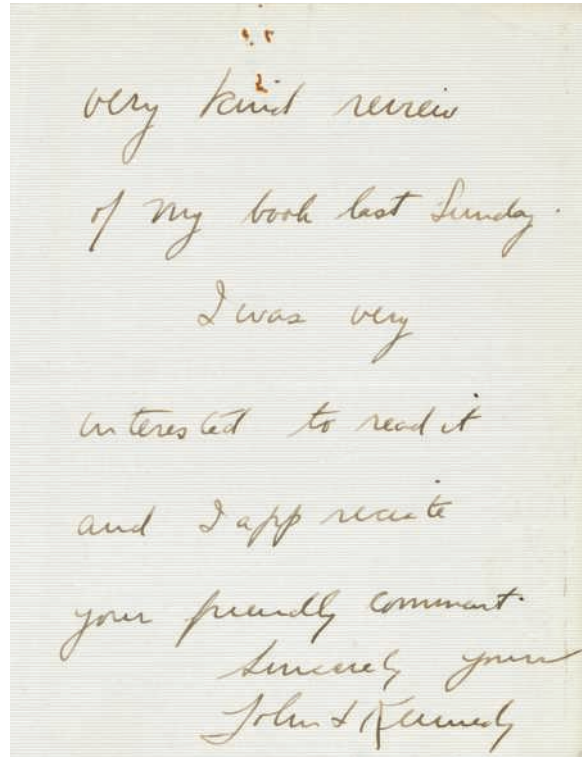 very kind review
of my book last Sunday.
I was very
interested to read it
and I appreciate
your friendly comment.
Sincerely yours
John F Kennedy